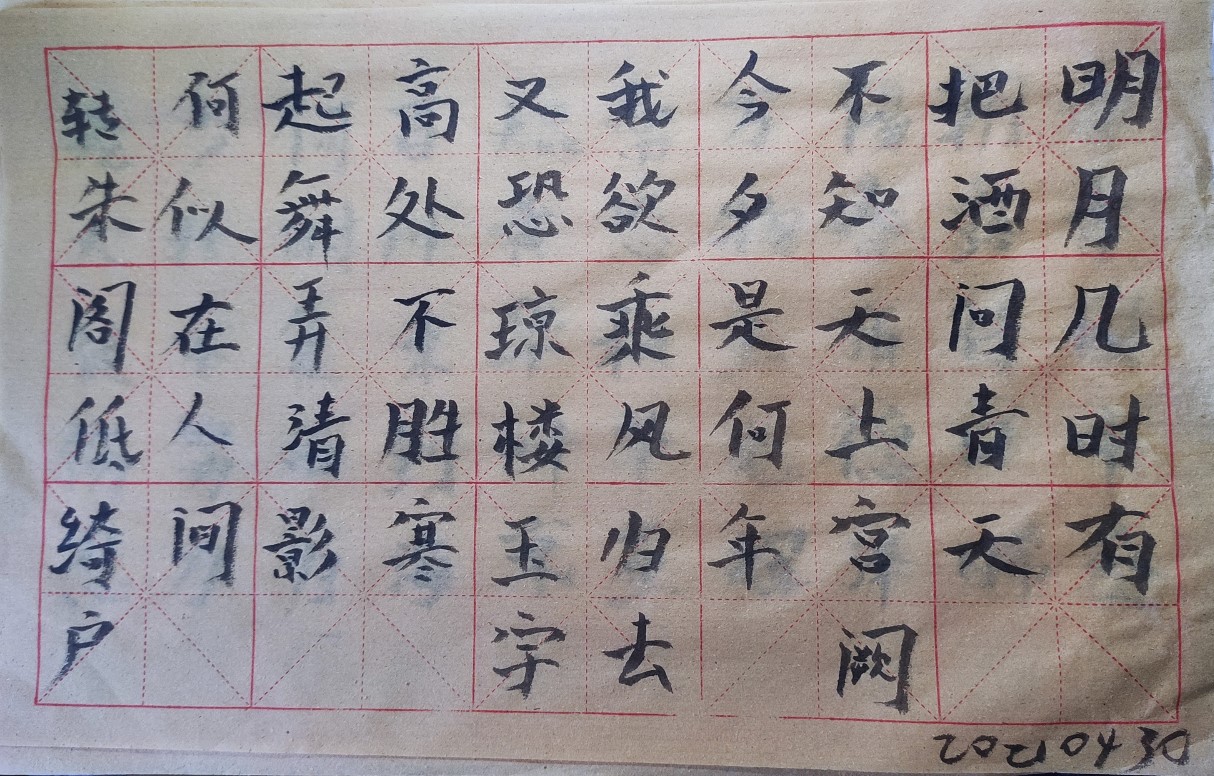 明月几时有
把酒问青天
不知天上宫阙
今夕是何年
我欲乘风归去
又恐琼楼玉字
高处不胜寒
起舞弄清影
何似在人间
转朱阁低绮户
20210430